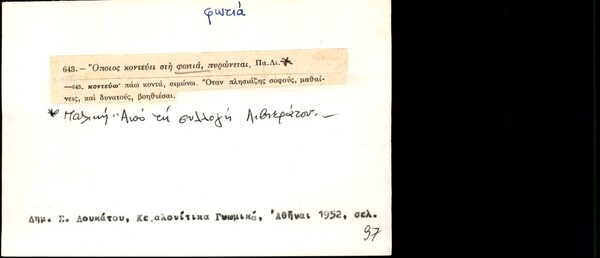 φωτιά
643. — Ὅποιος κοντεύει στὴ φωτιά, πυρώνεται. Πα.Λι. *
—643. κοντεύω· πάω κοντά, σιμώνω. Ὅταν πλησιάζῃς σοφούς, μαθαί-
νεις, καὶ δυνατούς, βοηθιέσαι.
* Από τη συλλογή Λιβιεράτου. —
Δημ. Σ. Λουκάτου, Κεφαλονίτικα Γνωμικά, Ἀθῆναι 1952, σελ.
97